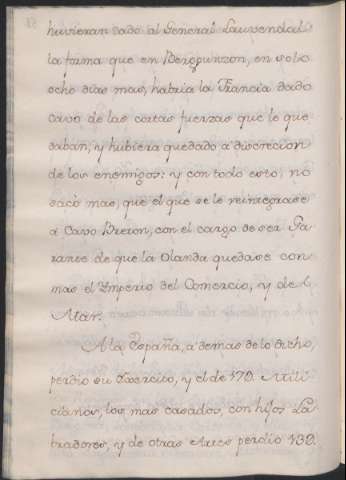 huvieran dado al General Lauvendal
la forma que en Bergpunzon, en solo
ocho dias mas, habria la Francia dado
cavo de las cortas fuerzas que le que
daban, y hubiera quedado a discrecion
de los enemigos: y con todo esto, no
sacó mas, que el que se le reintegrase
a Cavo Breton, con el cargo de ser Ga
rante de que la Olanda quedase con
mas el Ymperio del Comercio, y de l
Mar.
A la España, a demas de lo dicho,
perdio su Exercito, y el de 17D. Mili
cianos, los mas casados, con hijos La
bradores, y de otras Artes perdio 13D.